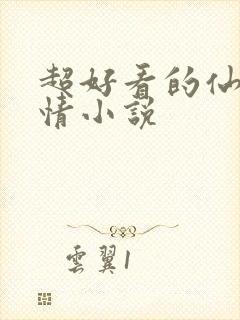 超好看的仙
情小説
雲翼1